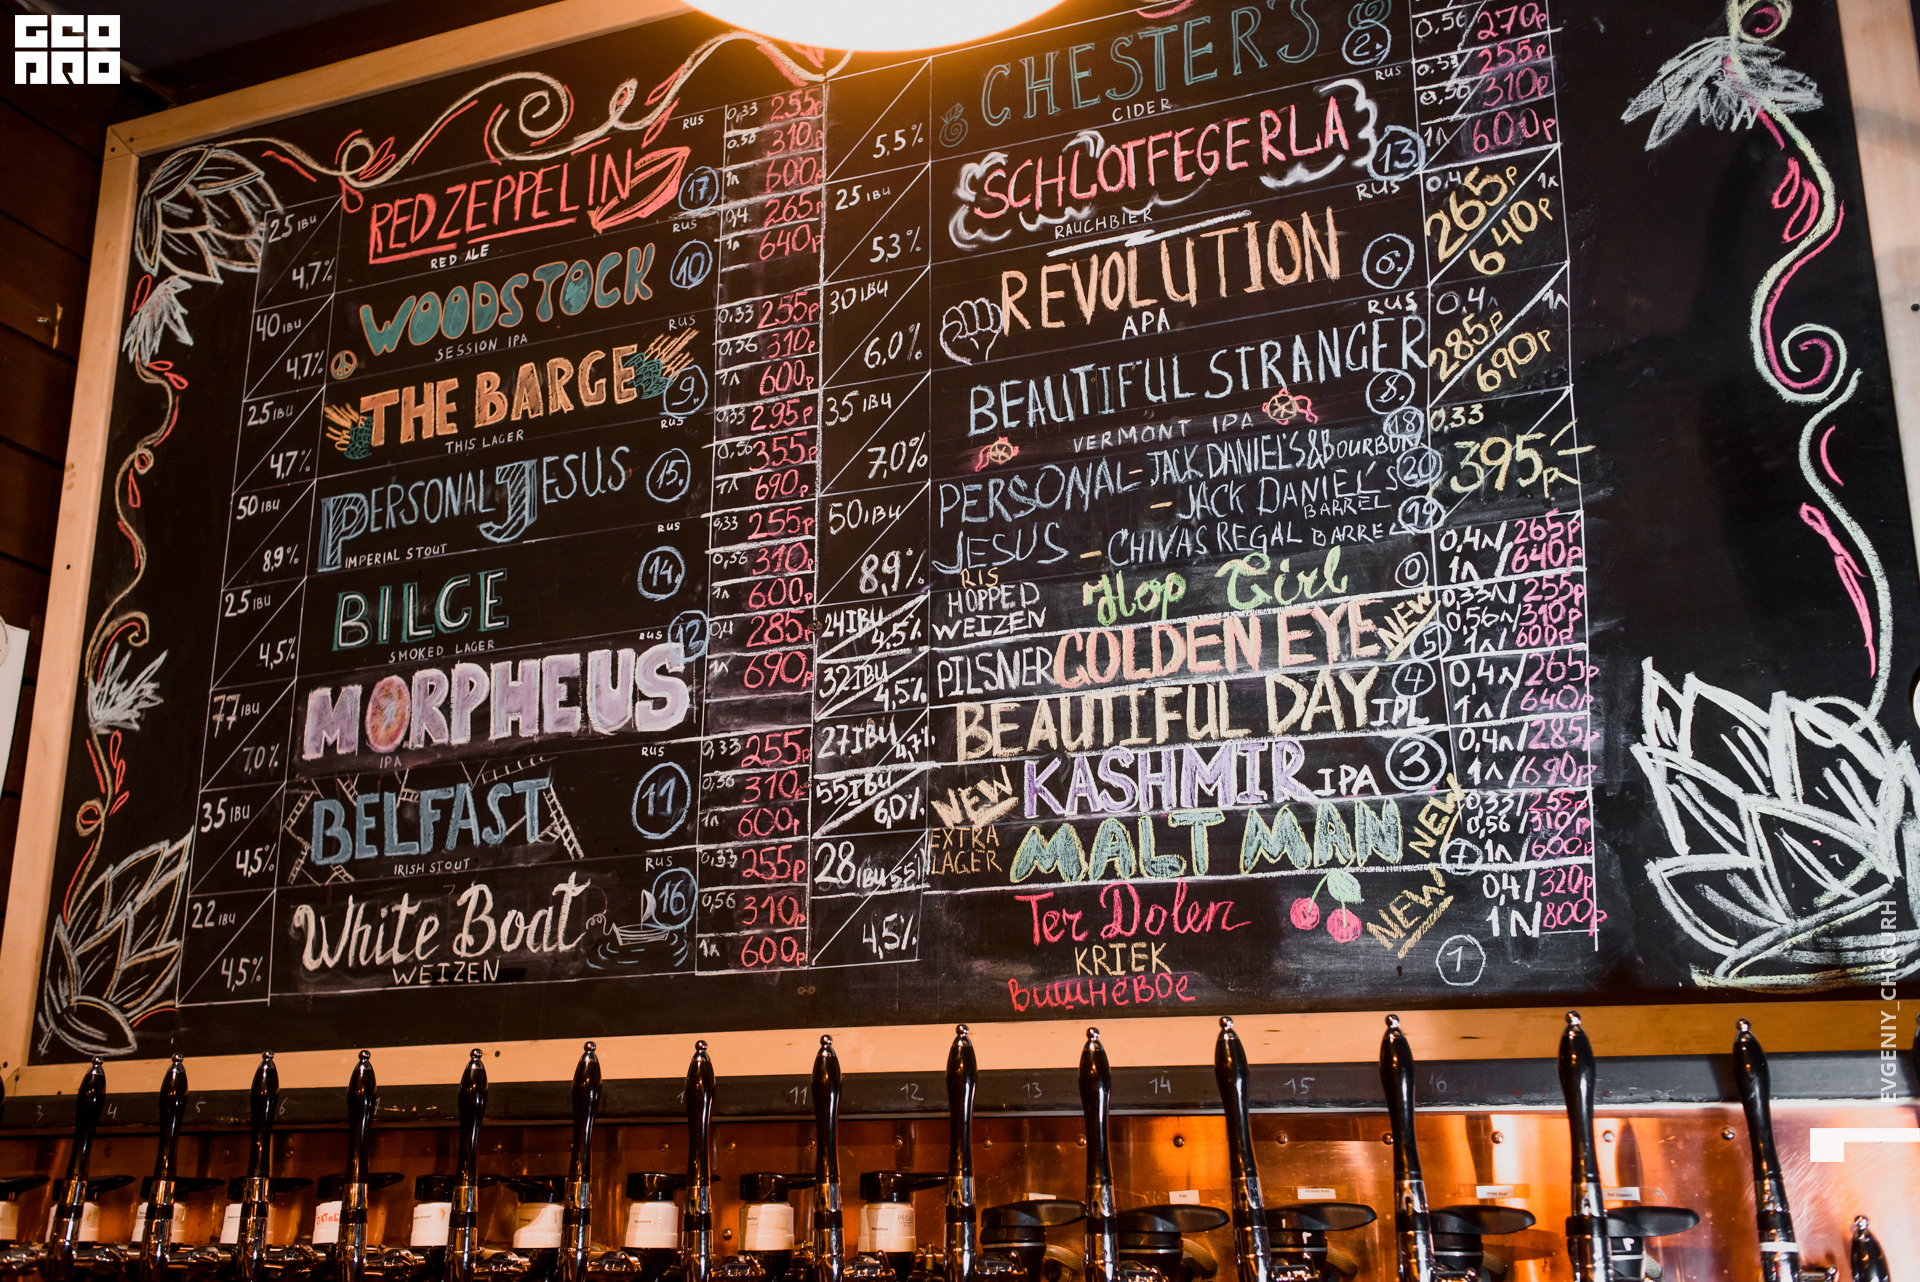 GEO
PRO
25 IBU
4,7%
RED ZEPPELIN
RED ALE
RUS
17
0,33 255р
0,56 310р
1л 600р
40 IBU
4,7%
WOODSTOCK
SESSION IPA
RUS
10
0,4 265р
1л 640р
25 IBU
4,7%
THE BARGE
THIS LAGER
RUS
9.
0,33 255р
0,56 310р
1л 600р
50 IBU
8,9%
PERSONAL JESUS
IMPERIAL STOUT
RUS
15.
0,33 295р
0,56 355р
1л 690р
25 IBU
4,5%
BILGE
SMOKED LAGER
RUS
14.
0,33 255р
0,56 310р
1л 600р
77 IBU
7,0%
MORPHEUS
IPA
RUS
12
0,4 285р
1л 690р
35 IBU
4,5%
BELFAST
IRISH STOUT
RUS
11
0,33 255р
0,56 310р
1л 600р
22 IBU
4,5%
White Boat
WEIZEN
RUS
16
0,33 255р
0,56 310р
1л 600р
5,5%
CHESTER'S
CIDER
2.
0,56 270р
25 IBU
5,3%
SCHLOTFEGERLA
RAUCHBIER
RUS
13
0,33 255р
0,56 310р
1л 600р
30 IBU
6,0%
REVOLUTION
APA
RUS
6.
0,4 265р
1л 640р
35 IBU
7,0%
BEAUTIFUL STRANGER
VERMONT IPA
RUS
8.
0,4 285р
1л 690р
50 IBU
8,9%
PERSONAL JESUS
RIS
– JACK DANIEL'S & BOURBON 18
– JACK DANIEL'S BARREL 20
– CHIVAS REGAL BARREL 19
0,33
395р
24 IBU
4,5%
HOPPED
WEIZEN
Hop Girl
0
0,4л/265р
1л/640р
32 IBU
4,5%
PILSNER GOLDEN EYE NEW
5
0,33л/255р
0,56л/310р
1л/600р
27 IBU
4,7%
BEAUTIFUL DAY IPL
4
0,4л/265р
1л/640р
55 IBU
6,0%
NEW KASHMIR IPA
3
0,4л/285р
1л/690р
28 IBU
EXTRA
LAGER
MALT MAN NEW
7
0,33/255р
0,56/310р
1л/600р
4,5%
Ter Dolen
KRIEK
Вишнёвое
NEW
1
0,4/320р
1л/800р
3 4 5 6 11 12 13 14 15 16
EVGENIY_CHIGURH